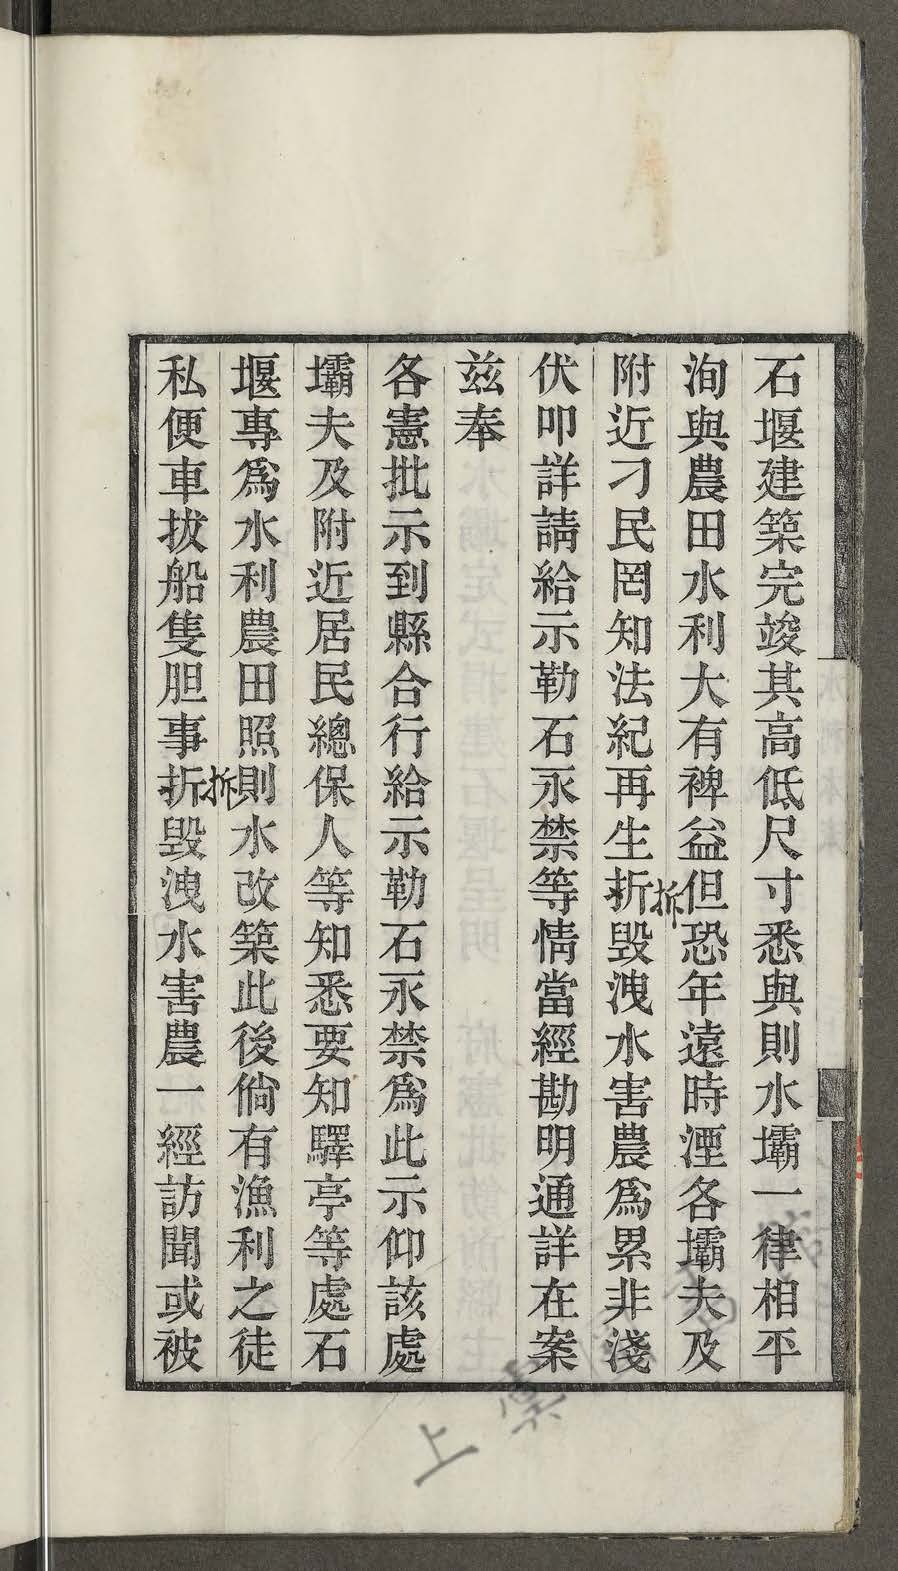 石堰建築完竣其高低尺寸悉與則水壩一律相平
洵與農田水利大有裨益但恐年遠時湮各壩夫及
附近刁民罔知法紀再生折毀洩水害農爲累非淺
拆
伏叩詳請給示勒石永禁等情當經勘明通詳在案
茲奉
各憲批示到縣合行給示勒石永禁爲此示仰該處
壩夫及附近居民總保人等知悉要知驛亭等處石
堰專爲水利農田照則水改築此後倘有漁利之徒
私便車拔船隻胆事折毀洩水害農一經訪聞或被
拆
上虞